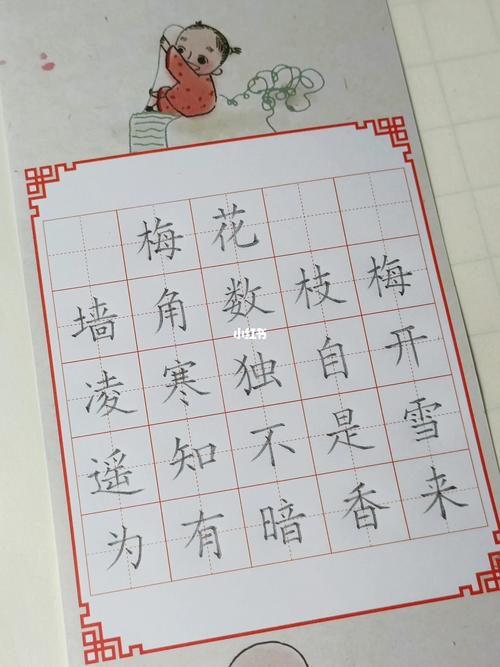 梅花
墙角数枝梅
小红书
凌寒独自开
遥知不是雪
为有暗香来